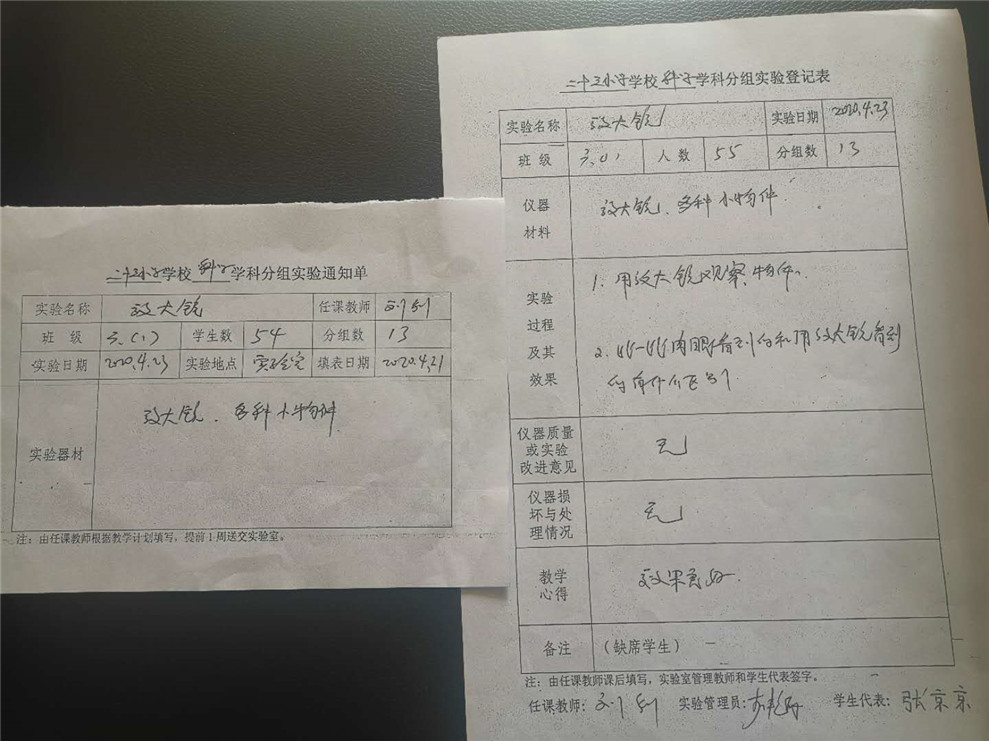 二十三小学学校 科学学科分组实验通知单
实验名称 放大镜 任课教师 刘钊
班 级 三(1) 学生数 54 分组数 13
实验日期 2020.4.23 实验地点 实验室 填表日期 2020.4.21
实验器材 放大镜、多种小物件
注：由任课教师根据教学计划填写，提前1周送交实验室。
二十三小学学校 科学学科分组实验登记表
实验名称 放大镜 实验日期 2020.4.23
班 级 三(1) 人 数 55 分组数 13
仪器
材料
放大镜、多种小物件.
实验
过程
及其
效果
1. 用放大镜观察物件.
2. 比一比肉眼看到的和用放大镜看到
的有什么区别
仪器质量
或实验
改进意见
无
仪器损
坏与处
理情况
无
教学
心得
效果良好.
备注 （缺席学生）
注：由任课教师课后填写，实验室管理教师和学生代表签字。
任课教师: 刘钊 实验管理员: 学生代表: 张京京